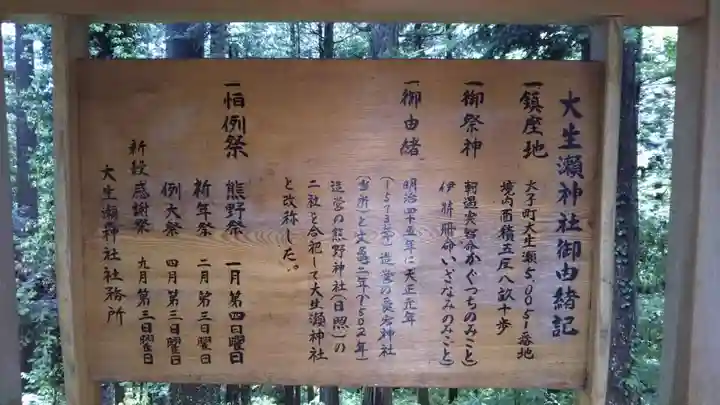 大生瀬神社御由緒記
一鎮座地
大子町大生瀬5,0051番地
境内面積五反八畝十歩
一御祭神
軻遇突智命(かぐつちのみこと)
伊弉冊命(いざなみのみこと)
一御由緒
明治四十五年に天正元年
(1573年)造営の愛宕神社
(当所)と文亀二年(1502年)
造営の熊野神社(日照)の
二社を合祀して大生瀬神社
と改称した。
一恒例祭
熊野祭 一月第四日曜日
祈年祭 二月第三日曜日
例大祭 四月第三日曜日
新穀感謝祭 九月第三日曜日
大生瀬神社社務所